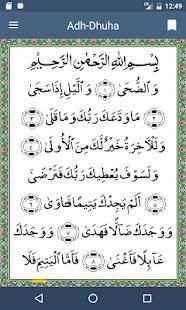 12:49
Adh-Dhuha
بِسْمِ اللَّهِ الرَّحْمَٰنِ الرَّحِيمِ
وَٱلضُّحَىٰ ١ وَٱلَّيْلِ إِذَا سَجَىٰ
٢ مَا وَدَّعَكَ رَبُّكَ وَمَا قَلَىٰ ٣
وَلَلْأٓخِرَةُ خَيْرٌ لَّكَ مِنَ ٱلْأُولَىٰ ٤
وَلَسَوْفَ يُعْطِيكَ رَبُّكَ فَتَرْضَىٰٓ
٥ أَلَمْ يَجِدْكَ يَتِيمًا فَـَٔاوَىٰ
٦ وَوَجَدَكَ ضَآلًّا فَهَدَىٰ ٧ وَوَجَدَكَ
عَآئِلًا فَأَغْنَىٰ ٨ فَأَمَّا ٱلْيَتِيمَ فَلَا